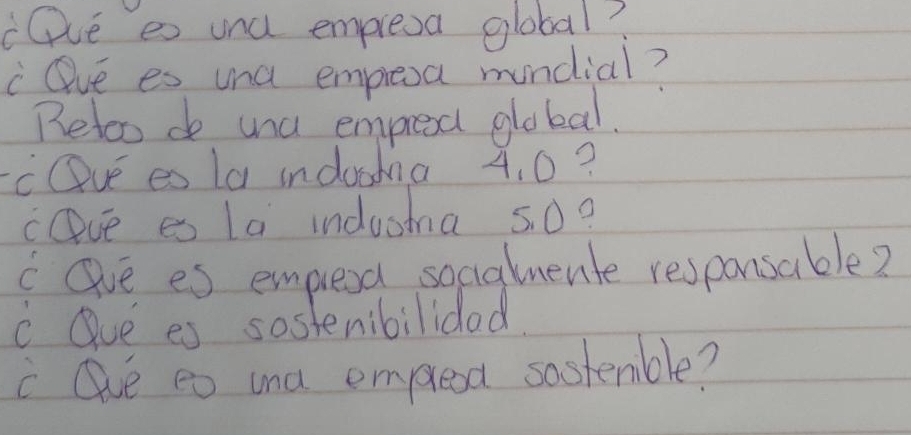 ¿Qué es una empresa global?
¿Qué es una empresa mundial?
Retos de una empresa global.
-¿Qué es la industria 4.0?
¿Qué es la industria 5.0?
¿Qué es empresa socialmente responsable?
¿Qué es sostenibilidad.
¿Qué es una empresa sostenible?